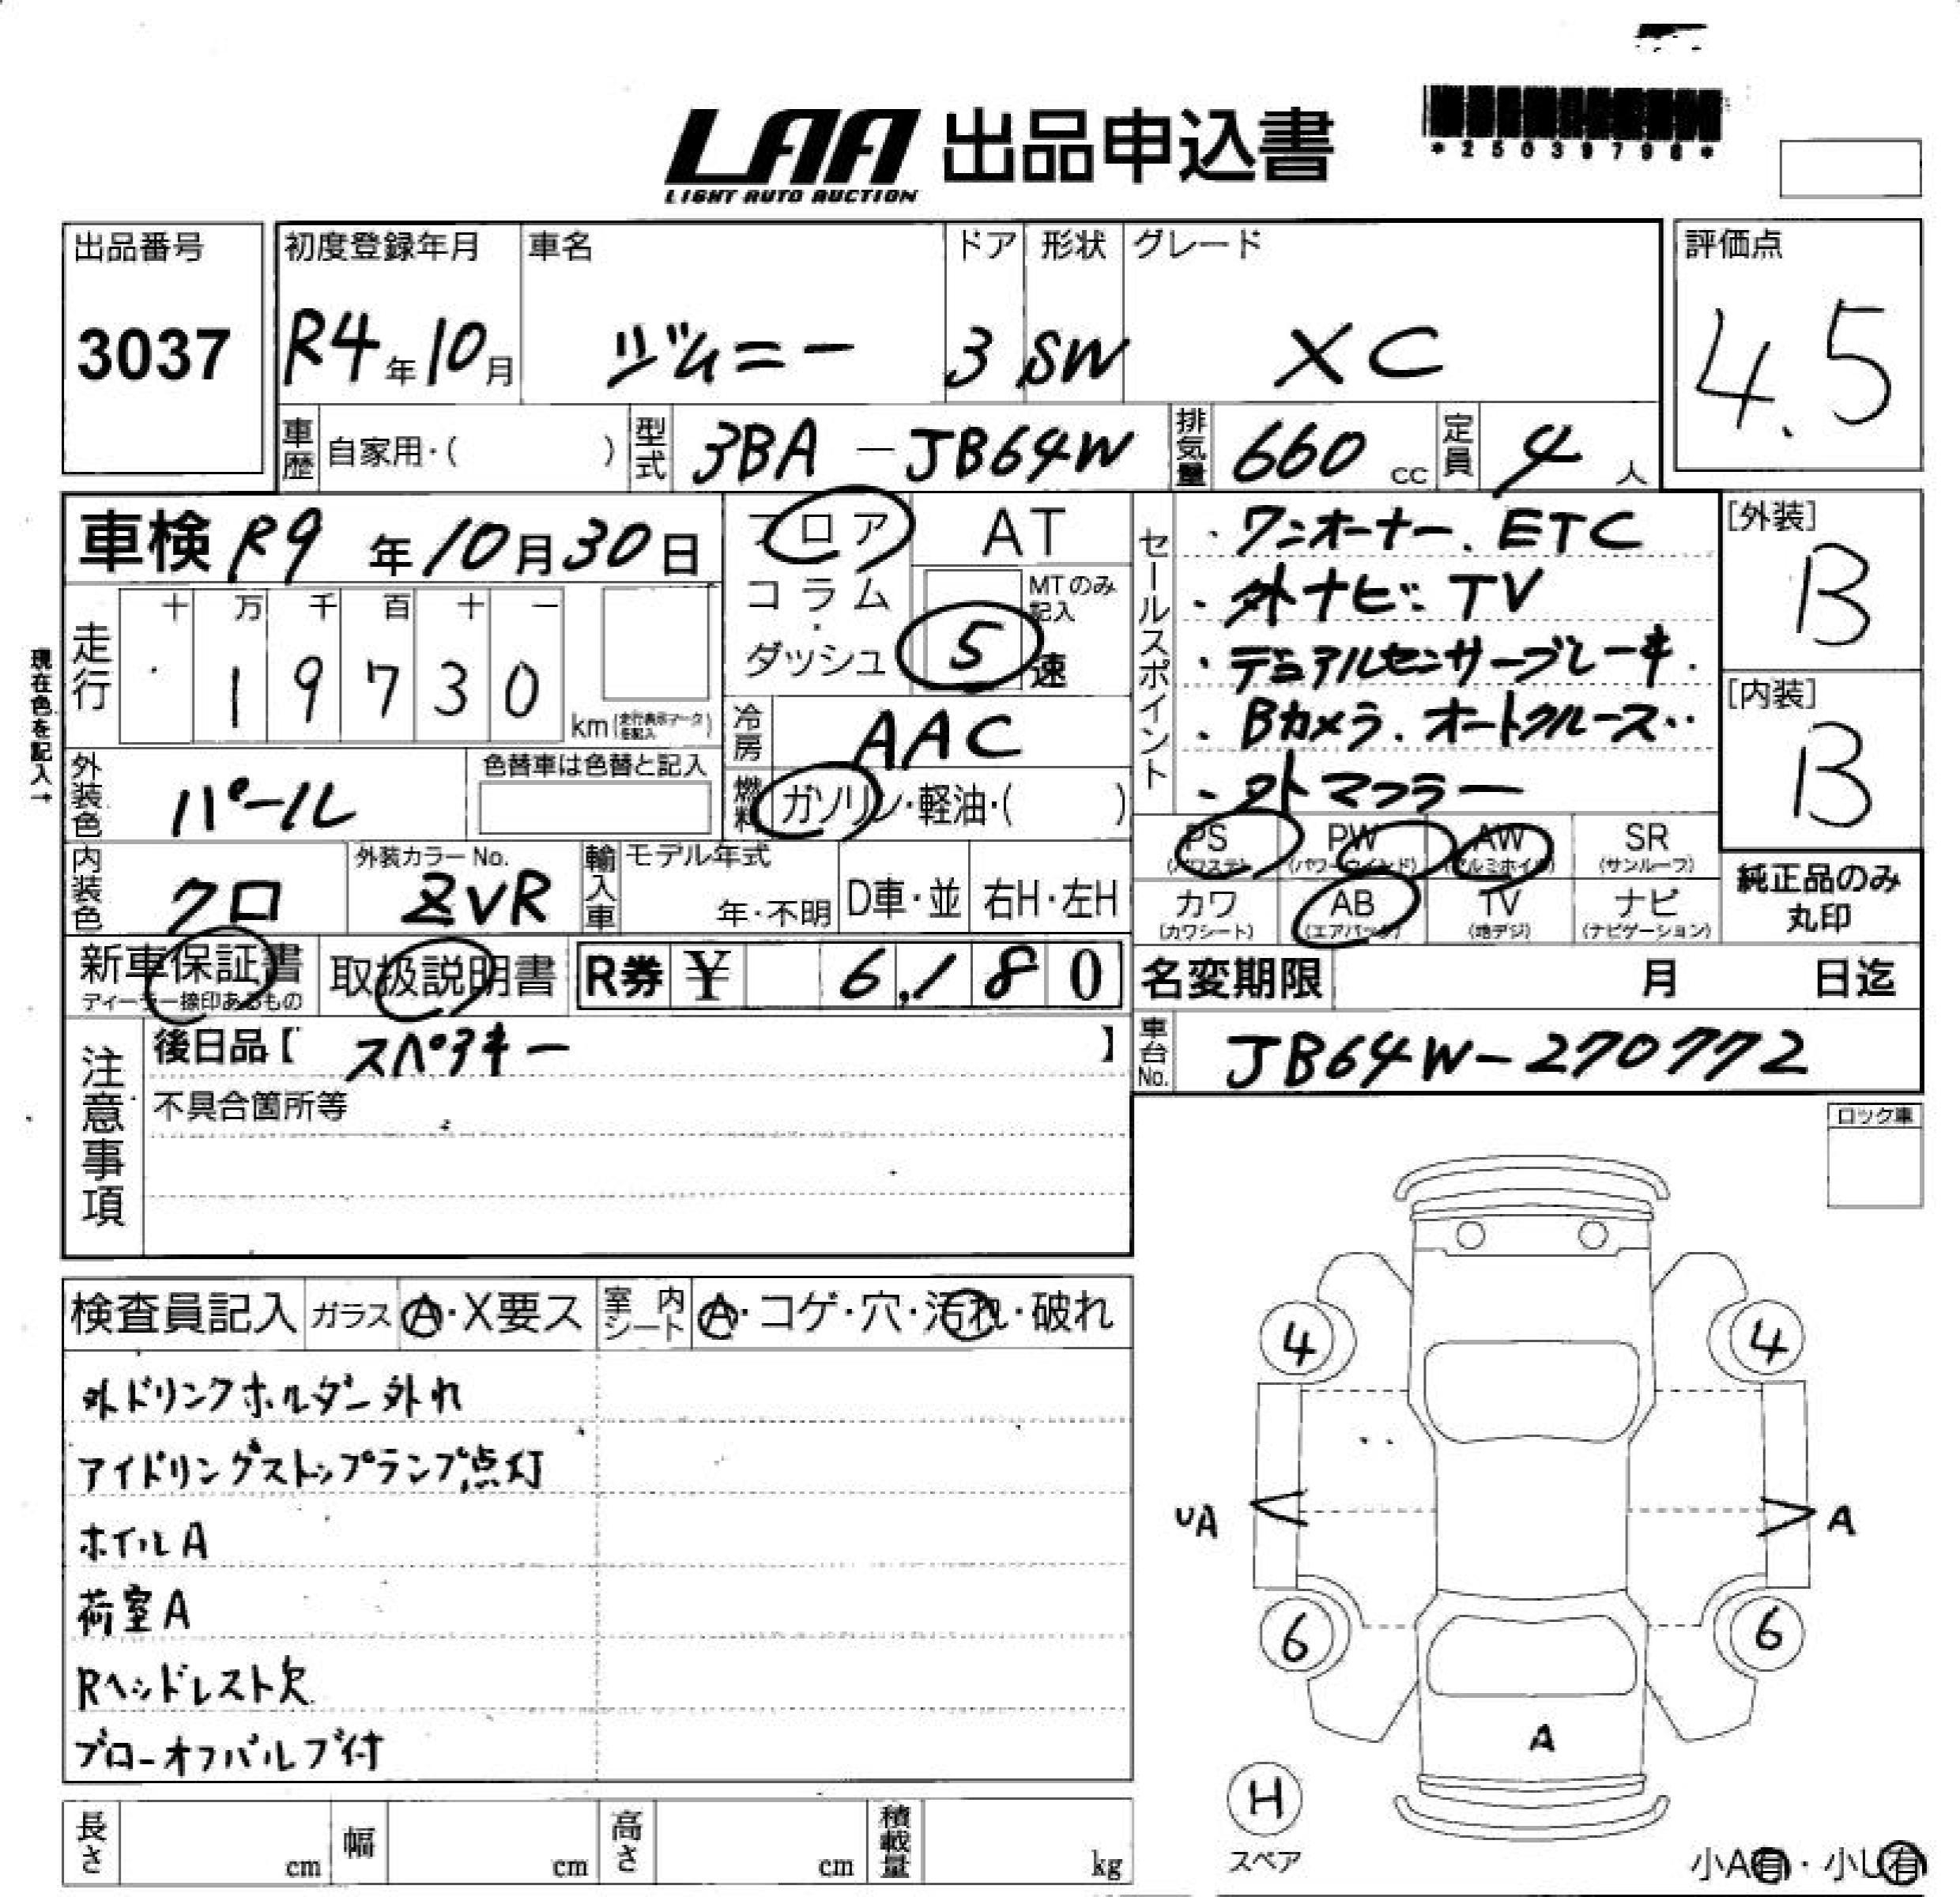 LAA 出品申込書
LIGHT AUTO AUCTION
*25039798*
出品番号 初度登録年月 車名 ドア 形状 グレード 評価点
3037 R4年10月 ジムニー 3 SW XC 4.5
車歴 自家用・( ) 型式 3BA-JB64W 排気量 660 cc 定員 4人
車検 R9年10月30日
フロア AT
コラム・ダッシュ
MTのみ記入
5速
現在色を記入→
走行 十 万 千 百 十 一
19730
km(走行表示マークを記入)
冷房 AAC
外装色 パール 色替車は色替と記入
燃料 ガソリン・軽油・( )
セールスポイント
・ワンオーナー、ETC
・外ナビ・TV
・デュアルセンサーブレーキ
・Bカメラ、オートクルーズ
・マフラー
[外装]
B
[内装]
B
内装色 クロ 外装カラーNo. ZVR 輸入車 モデル年式 年・不明 D車・並 右H・左H
PS (パワステ) PW (パワーウインド) AW (アルミホイル) SR (サンルーフ)
カワ (カワシート) AB (エアバッグ) TV (地デジ) ナビ (ナビゲーション)
純正品のみ
丸印
新車保証書
ディーラー捺印あるもの
取扱説明書 R券 ¥ 6,180
名変期限 月 日迄
注意事項
後日品【 スペアキー 】
不具合箇所等
車台No. JB64W-270772
ロック車
検査員記入 ガラス A・X要ス 室内シート A・コゲ・穴・汚れ・破れ
外ドリンクホルダー外れ
アイドリングストップランプ点灯
ホイルA
荷室A
Rヘッドレスト欠
ブローオフバルブ付
4 4
UA A
6 6
A
H
スペア
小A有・小U有
長さ cm 幅 cm 高さ cm 積載量 kg